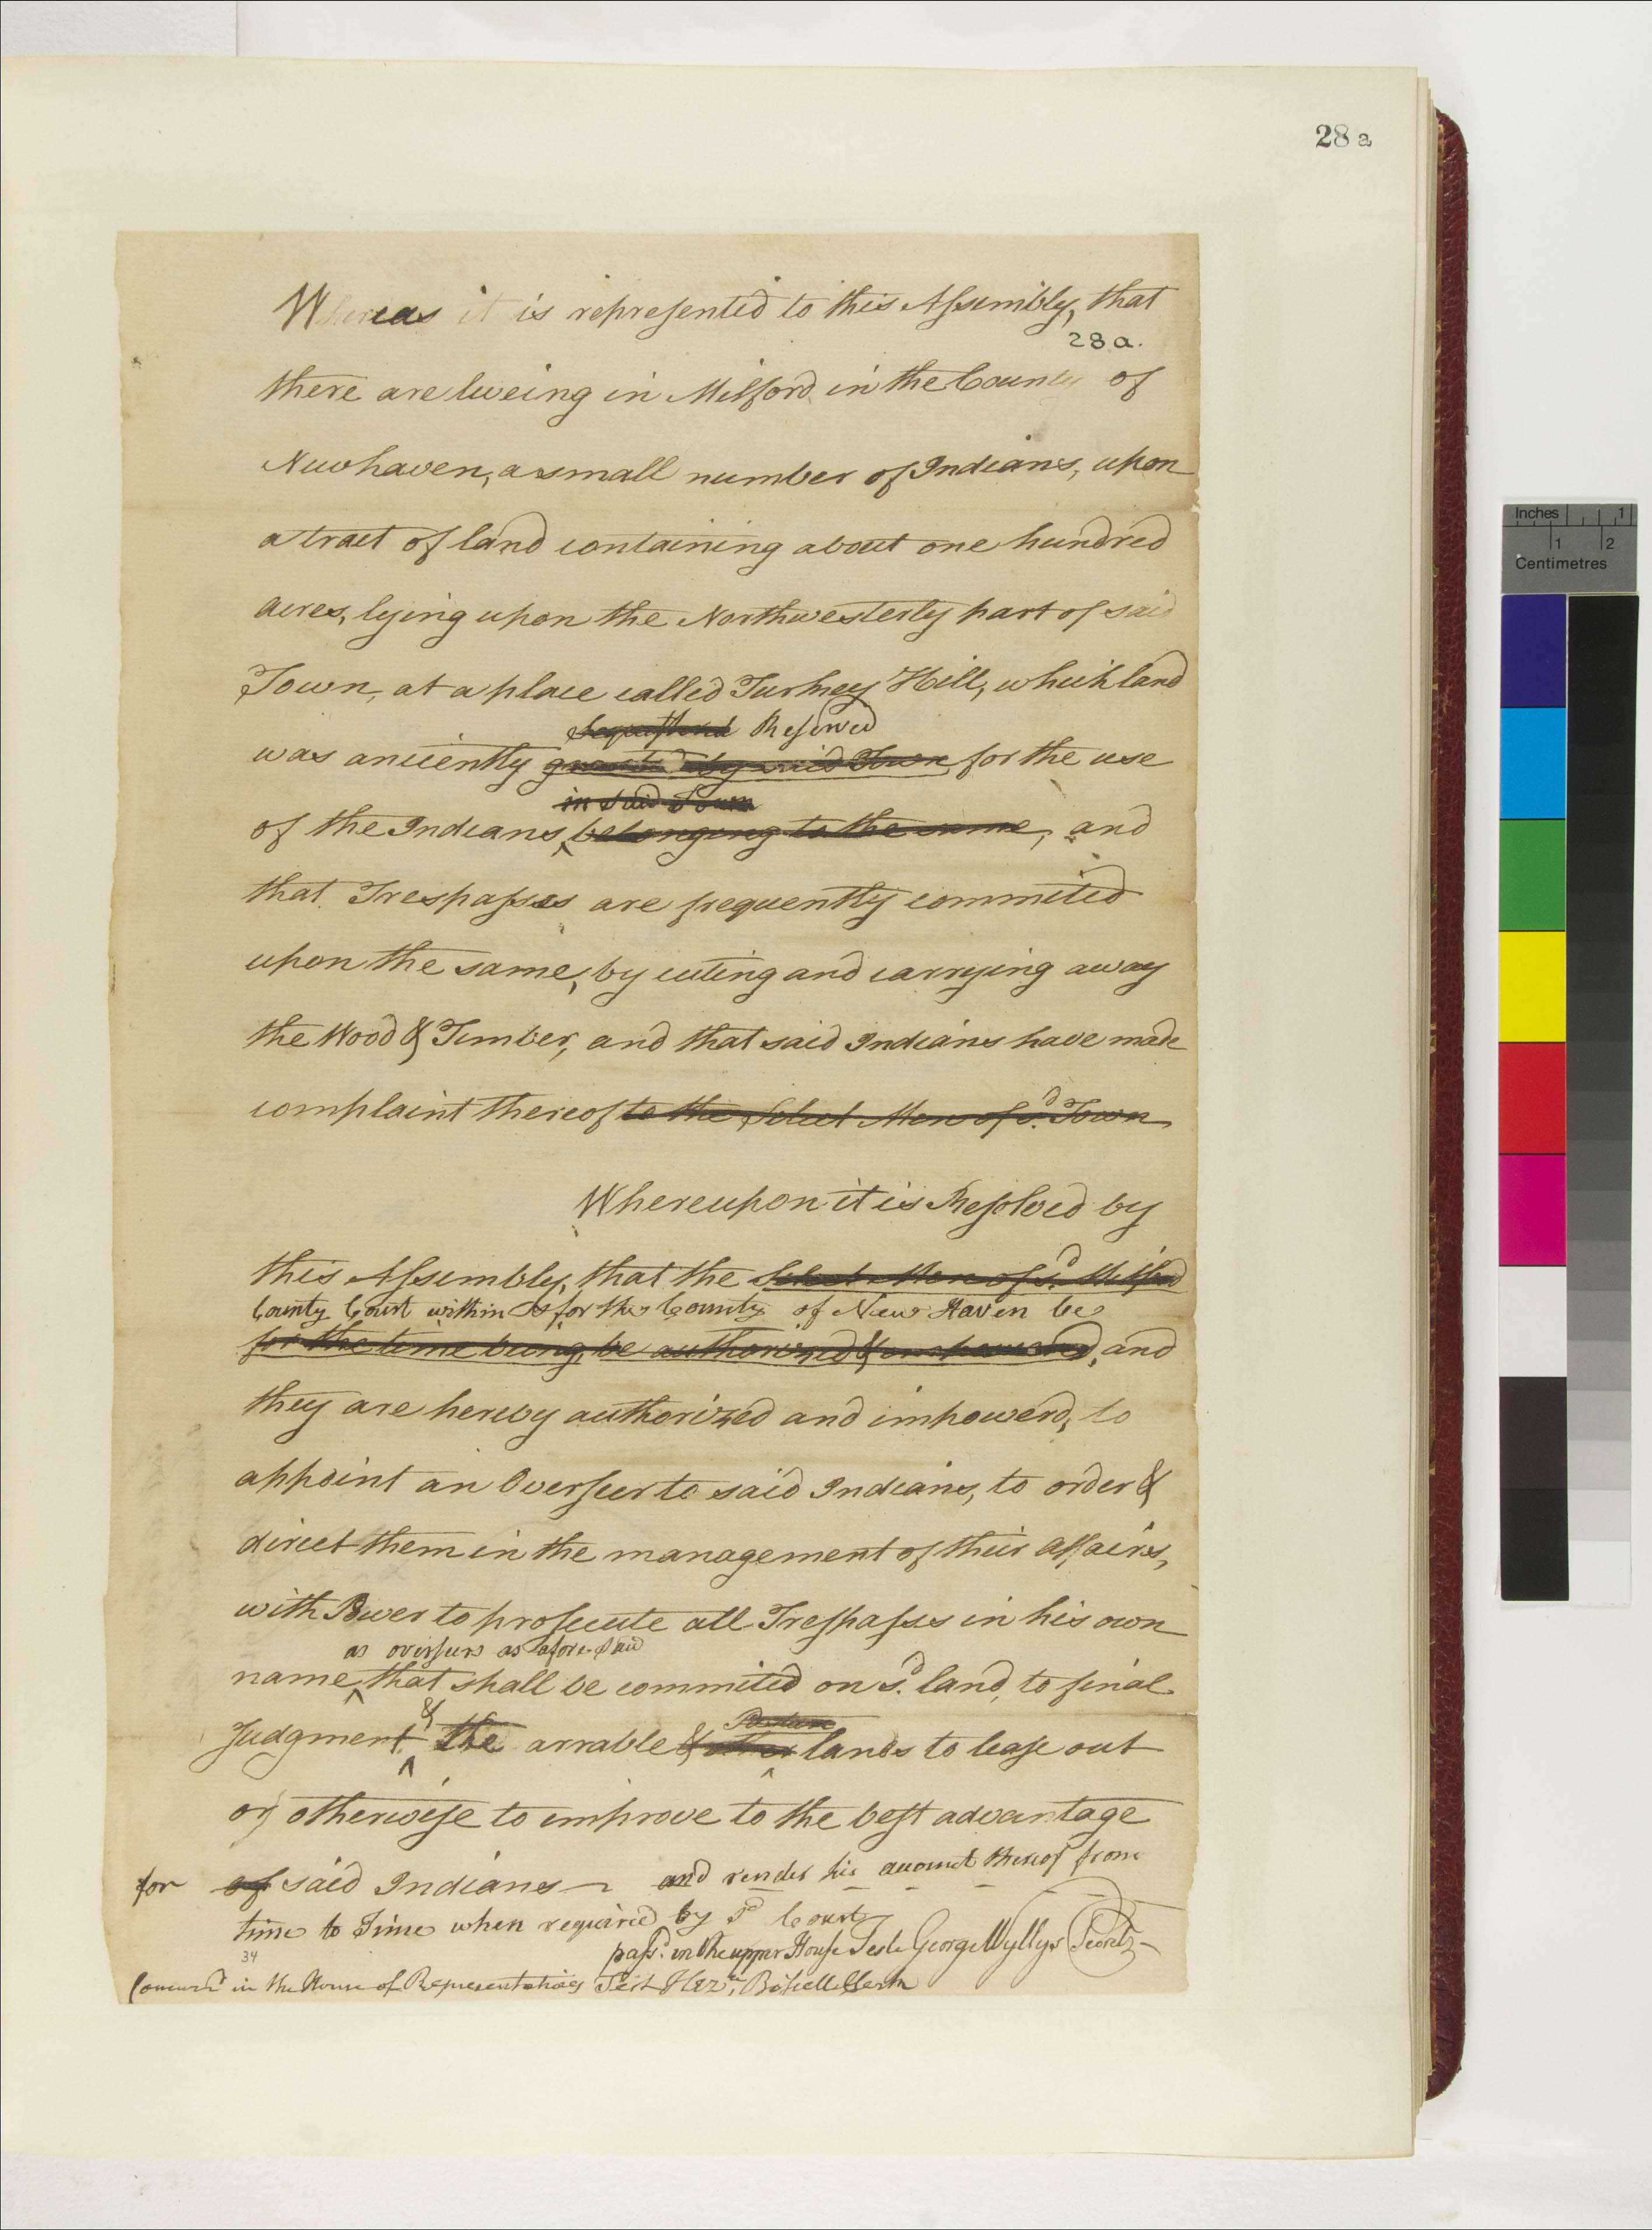 28 a
Whereas it is represented to this Assembly, that
28a.
there are liveing in Milford in the County of
Newhaven, a small number of Indians, upon
a tract of land containing about one hundred
acres, lying upon the Northwesterly part of said
Town, at a place called Turkey Hill, which land
Sequestered Reserved
was anciently granted by said Town for the use
in said Town
of the Indians, belonging to the same, and
that Trespasses are frequently commited
upon the same, by cuting and carrying away
the Wood & Timber, and that said Indians have made
complaint thereof to the Select Men of sd. Town
Whereupon it is Resolved by
this Assembly, that the Select Men of sd. Milford
County Court within & for the County of New Haven be
for the time being, be authorized & impowered, and
they are hereby authorized and impowerd, to
appoint an Overseer to said Indians, to order &
direct them in the management of their affairs,
with Power to prosecute all Trespasses in his own
as overseers as afore-said
name that shall be commited on sd. land, to final
& Pasture
Judgment, the arrable & other lands to lease out
or otherwise to improve to the best advantage
for of said Indians – and render his account thereof from
time to Time when required by sd Court
passd. in the upper House Teste George Wyllys Secrety
34
Concurd in the House of Representatives Test Hezh. Bissell Clerk